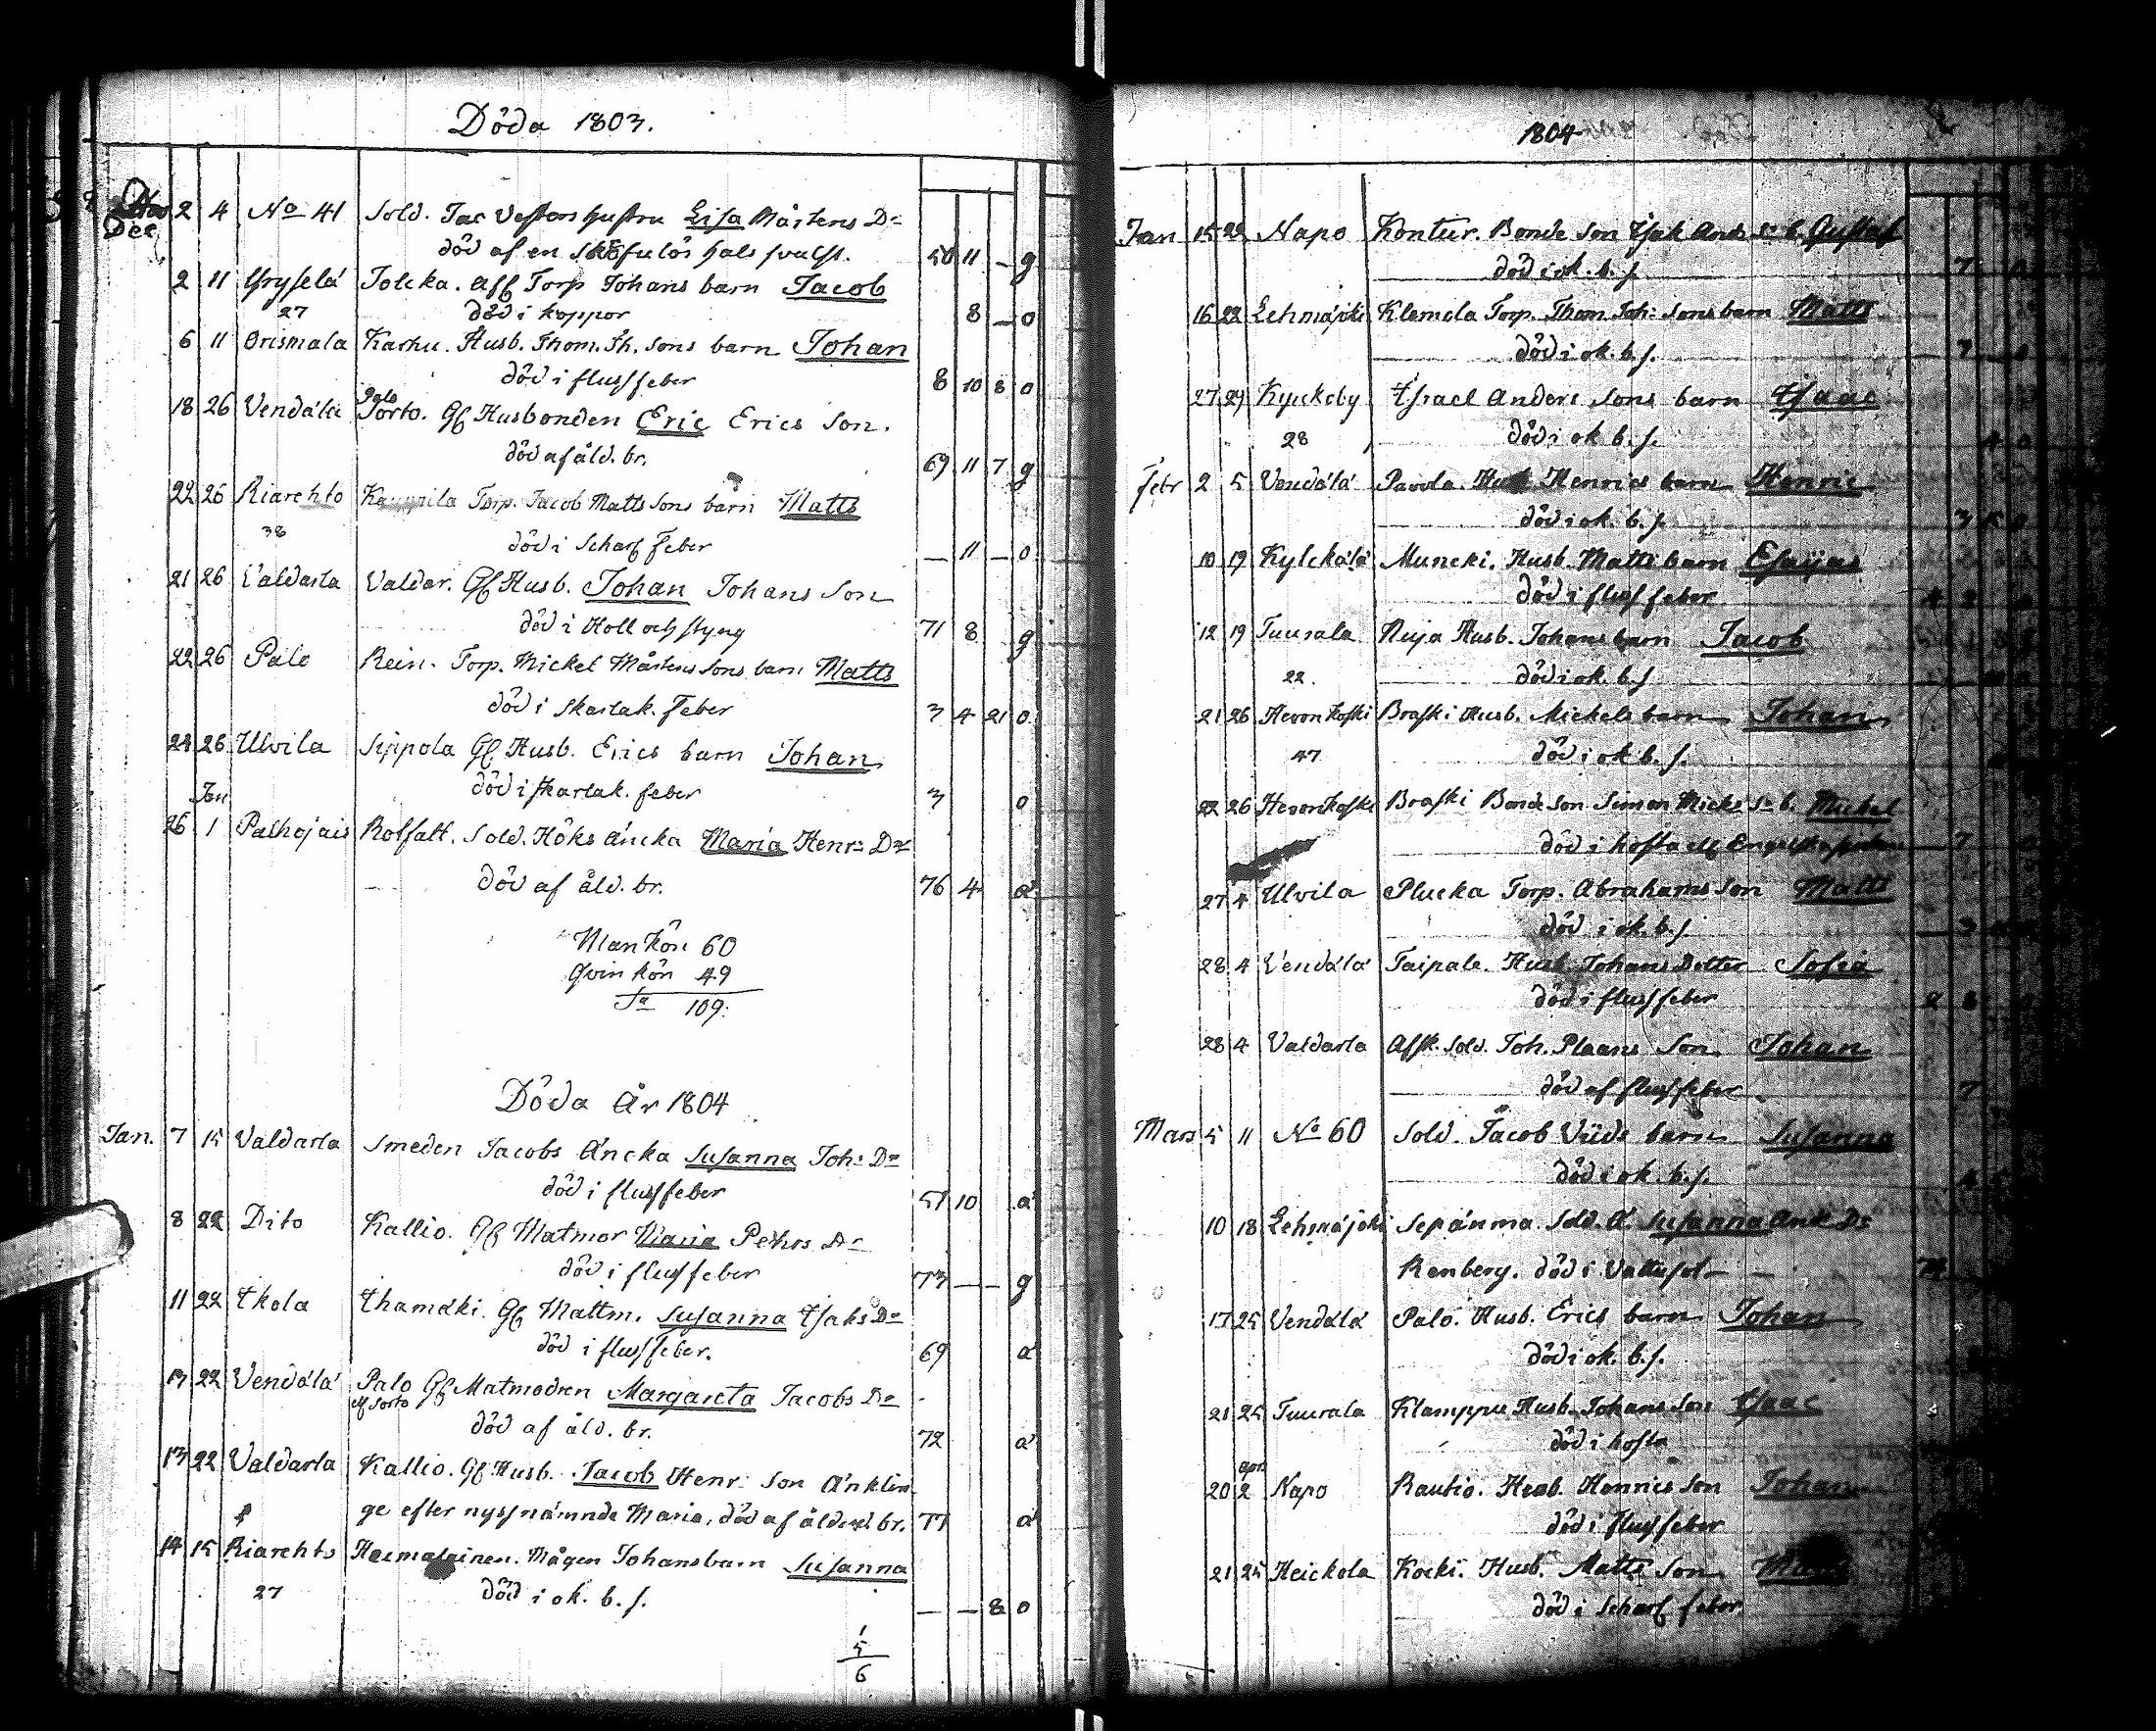 Döda 1803.
Dec 2 4 No 41 Sold. Jac Vesters hustru Lisa Mårtens Dr
död af en skrofulös hals svulst. 50 11 – g
2 11 Gryselä Jolcka. Aff Torp Johans barn Jacob
27 död i koppor 8 – o
6 11 Orismala Karhu. Husb. Thom. Th. Sons barn Johan
död i flussfeber 8 10 8 o
18 26 Vendälä Sorto. Gf Husbonden Eric Erics Son.
död af åld. br. 69 11 7 g
22 26 Riarehto Torp. Jacob Matts Sons barn Matts
38 död i Scharf Feber – 11 – o
21 26 Valdarla Valdar. Gf Husb. Johan Johans Son
död i Håll och styng 71 8 g
22 26 Palo Rein. Torp. Mickel Mårtens Sons barn Matts
död i Skarlak. Feber 3 4 21 o
28 26 Ulvila Seppola Gf Husb. Erics barn Johan
död i skarlak. feber 3 o
Jan
26 1 Palhojais Rolfatt. Sold. Höks äncka Maria Henr: Dr
död af åld. br. 76 4 ä
Mankön 60
Qvinkön 49
Sa 109:
Döda År 1804
Jan. 7 15 Valdarla Smeden Jacobs Äncka Susanna Joh: Dr
död i flussfeber 51 10 ä
8 22 Dito Kallio. Gf Matmor Maria Pehrs Dr
död i flussfeber 73 – – g
11 22 Ikola Ihamäki. Gf Mattm. Susanna Isaks Dr
död i flussfeber. 69 ä
13 22 Vendälä Palo Gf Matmodren Margareta Jacobs Dr
elf Sorto
död af åld. br. 72 ä
13 22 Valdarla Kallio. Gf Husb. Jacob Henr Son Änklin
ge efter nyssnämnde Maria, död af ålder br. 77 ä
14 15 Riarehto Mågen Johans barn Susanna
27 död i ok. b. s. – – 8 o
1
5
6
1804
Jan 15 22 Napo Kontur. Bonde Son Isak And. S: b. Gustaf
död i ok. b. s. 7
16 22 Lehmäjoki Klemola Torp. Thom Joh: Sons barn Matts
död i ok. b. s. – 7 –
27 29 Kyckoby Israel Anders Sons barn Isaac
28 död i ok b. s.
Febr 2 5 Vendälä Pavola Husb Henrics barn Henric
död i ok. b. s. 3
10 19 Kylckälä Muncki. Husb. Matts barn Esaijas
död i flussfeber 4 2
12 19 Tuurala Nuja Husb. Johans barn Jacob
22. död i ok. b. s
21 26 Hevonkoski Braski Husb. Mickels barn Johan
47 död i ok b. s.
22 26 Hevonkoski Braski Bonde Son Simon Micks S: b. Mickel
död i hosta elf Engelska 7
27 4 Ulvila Plucka Torp. Abrahams Son Matts
död i ok. b. s – 3
28 4 Vendälä Taipale. Husb. Johans Dotter Sofia
död i flussfeber 2 8
28 4 Valdarla Afsk. Sold. Joh. Plaans Son Johan
död af flussfeber 7
Mars 5 11 No 60 Sold. Jacob Viids barn Susanna
död i ok. b. s.
10 18 Lehmäjoki Sepänma. Sold. Ä. Susanna And. Dr
Renberg. död i Vattusot –
17 25 Vendälä Palo. Husb. Erics barn Johan
död i ok. b. s.
21 25 Tuurala Klamppu Husb. Johans Son Isaac
död i hosta
apr
20 2 Napo Rautio. Husb. Henrics Son Johan
död i flussfeber
21 25 Heickola Kocki. Husb. Matts Son
död i Scharf feber.